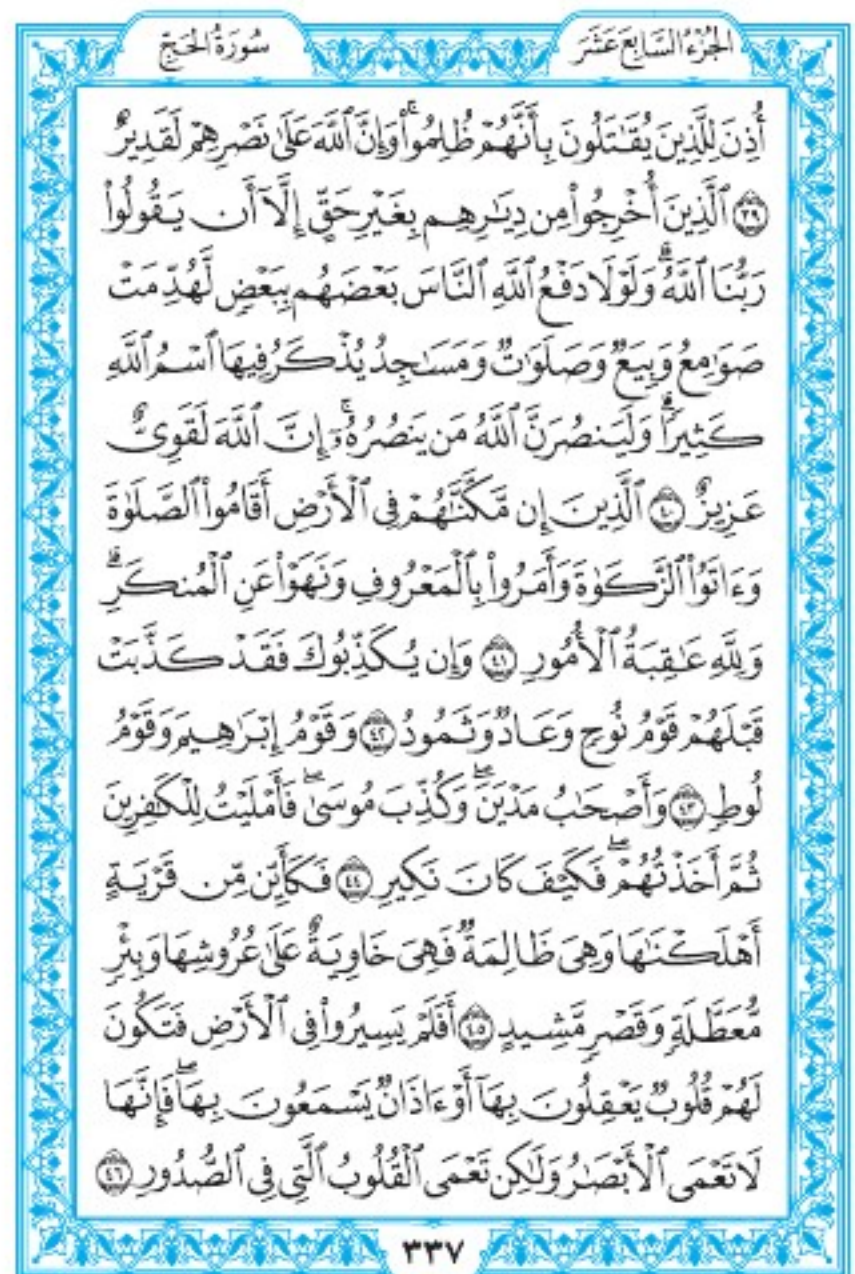 الجُزْءُ السَّابِعَ عَشَرَ
سُورَةُ الحَجِّ
أُذِنَ لِلَّذِينَ يُقَٰتَلُونَ بِأَنَّهُمْ ظُلِمُوا۟ ۚ وَإِنَّ ٱللَّهَ عَلَىٰ نَصْرِهِمْ لَقَدِيرٌ
٣٩ ٱلَّذِينَ أُخْرِجُوا۟ مِن دِيَٰرِهِم بِغَيْرِ حَقٍّ إِلَّآ أَن يَقُولُوا۟
رَبُّنَا ٱللَّهُ ۗ وَلَوْلَا دَفْعُ ٱللَّهِ ٱلنَّاسَ بَعْضَهُم بِبَعْضٍ لَّهُدِّمَتْ
صَوَٰمِعُ وَبِيَعٌ وَصَلَوَٰتٌ وَمَسَٰجِدُ يُذْكَرُ فِيهَا ٱسْمُ ٱللَّهِ
كَثِيرًا ۗ وَلَيَنصُرَنَّ ٱللَّهُ مَن يَنصُرُهُۥٓ ۚ إِنَّ ٱللَّهَ لَقَوِىٌّ
عَزِيزٌ ٤٠ ٱلَّذِينَ إِن مَّكَّنَّٰهُمْ فِى ٱلْأَرْضِ أَقَامُوا۟ ٱلصَّلَوٰةَ
وَءَاتَوُا۟ ٱلزَّكَوٰةَ وَأَمَرُوا۟ بِٱلْمَعْرُوفِ وَنَهَوْا۟ عَنِ ٱلْمُنكَرِ ۗ
وَلِلَّهِ عَٰقِبَةُ ٱلْأُمُورِ ٤١ وَإِن يُكَذِّبُوكَ فَقَدْ كَذَّبَتْ
قَبْلَهُمْ قَوْمُ نُوحٍ وَعَادٌ وَثَمُودُ ٤٢ وَقَوْمُ إِبْرَٰهِيمَ وَقَوْمُ
لُوطٍ ٤٣ وَأَصْحَٰبُ مَدْيَنَ ۖ وَكُذِّبَ مُوسَىٰ ۖ فَأَمْلَيْتُ لِلْكَٰفِرِينَ
ثُمَّ أَخَذْتُهُمْ ۖ فَكَيْفَ كَانَ نَكِيرِ ٤٤ فَكَأَيِّن مِّن قَرْيَةٍ
أَهْلَكْنَٰهَا وَهِىَ ظَالِمَةٌ فَهِىَ خَاوِيَةٌ عَلَىٰ عُرُوشِهَا وَبِئْرٍ
مُّعَطَّلَةٍ وَقَصْرٍ مَّشِيدٍ ٤٥ أَفَلَمْ يَسِيرُوا۟ فِى ٱلْأَرْضِ فَتَكُونَ
لَهُمْ قُلُوبٌ يَعْقِلُونَ بِهَآ أَوْ ءَاذَانٌ يَسْمَعُونَ بِهَا ۖ فَإِنَّهَا
لَا تَعْمَى ٱلْأَبْصَٰرُ وَلَٰكِن تَعْمَى ٱلْقُلُوبُ ٱلَّتِى فِى ٱلصُّدُورِ ٤٦
٣٣٧